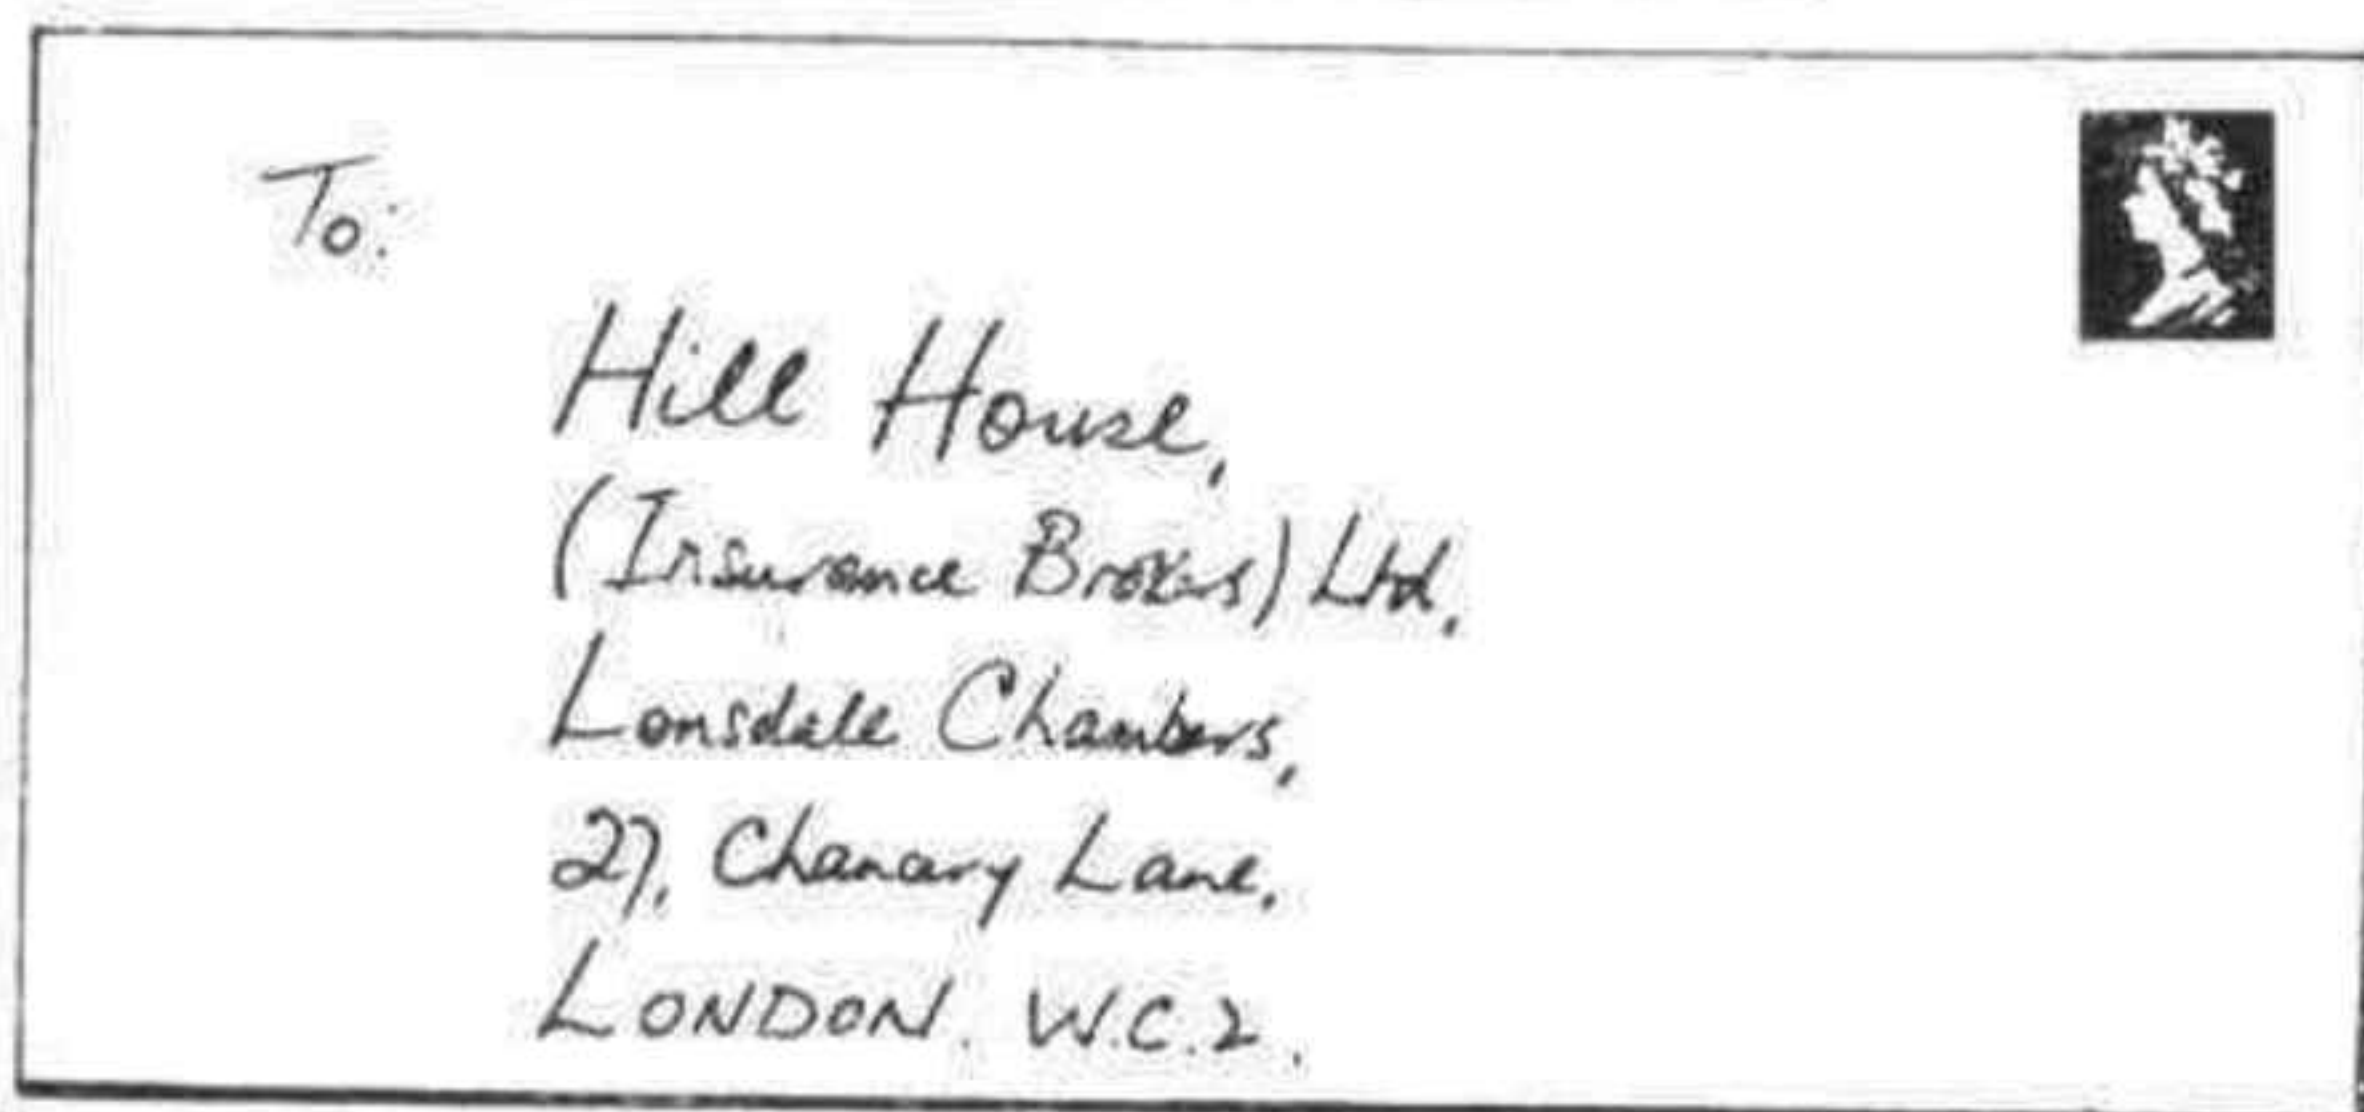 To:
Hill House,
(Insurance Brokers) Ltd.
Lonsdale Chambers,
27, Chancery Lane,
LONDON. W.C.2.